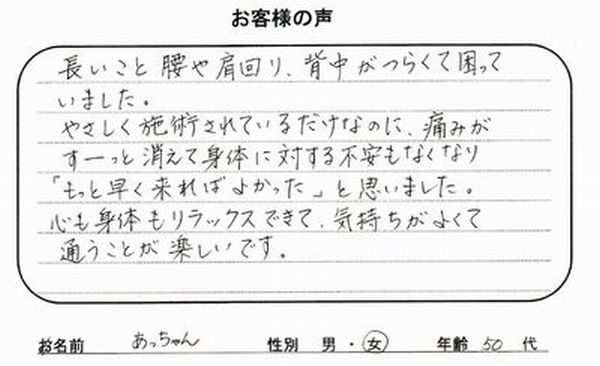 お客様の声
長いこと腰や肩回り、背中がつらくて困って
いました。
やさしく施術されているだけなのに、痛みが
すーっと消えて身体に対する不安もなくなり
「もっと早く来ればよかった」と思いました。
心も身体もリラックスできて、気持ちがよくて
通うことが楽しいです。
お名前 あっちゃん 性別 男・女 年齢 50 代